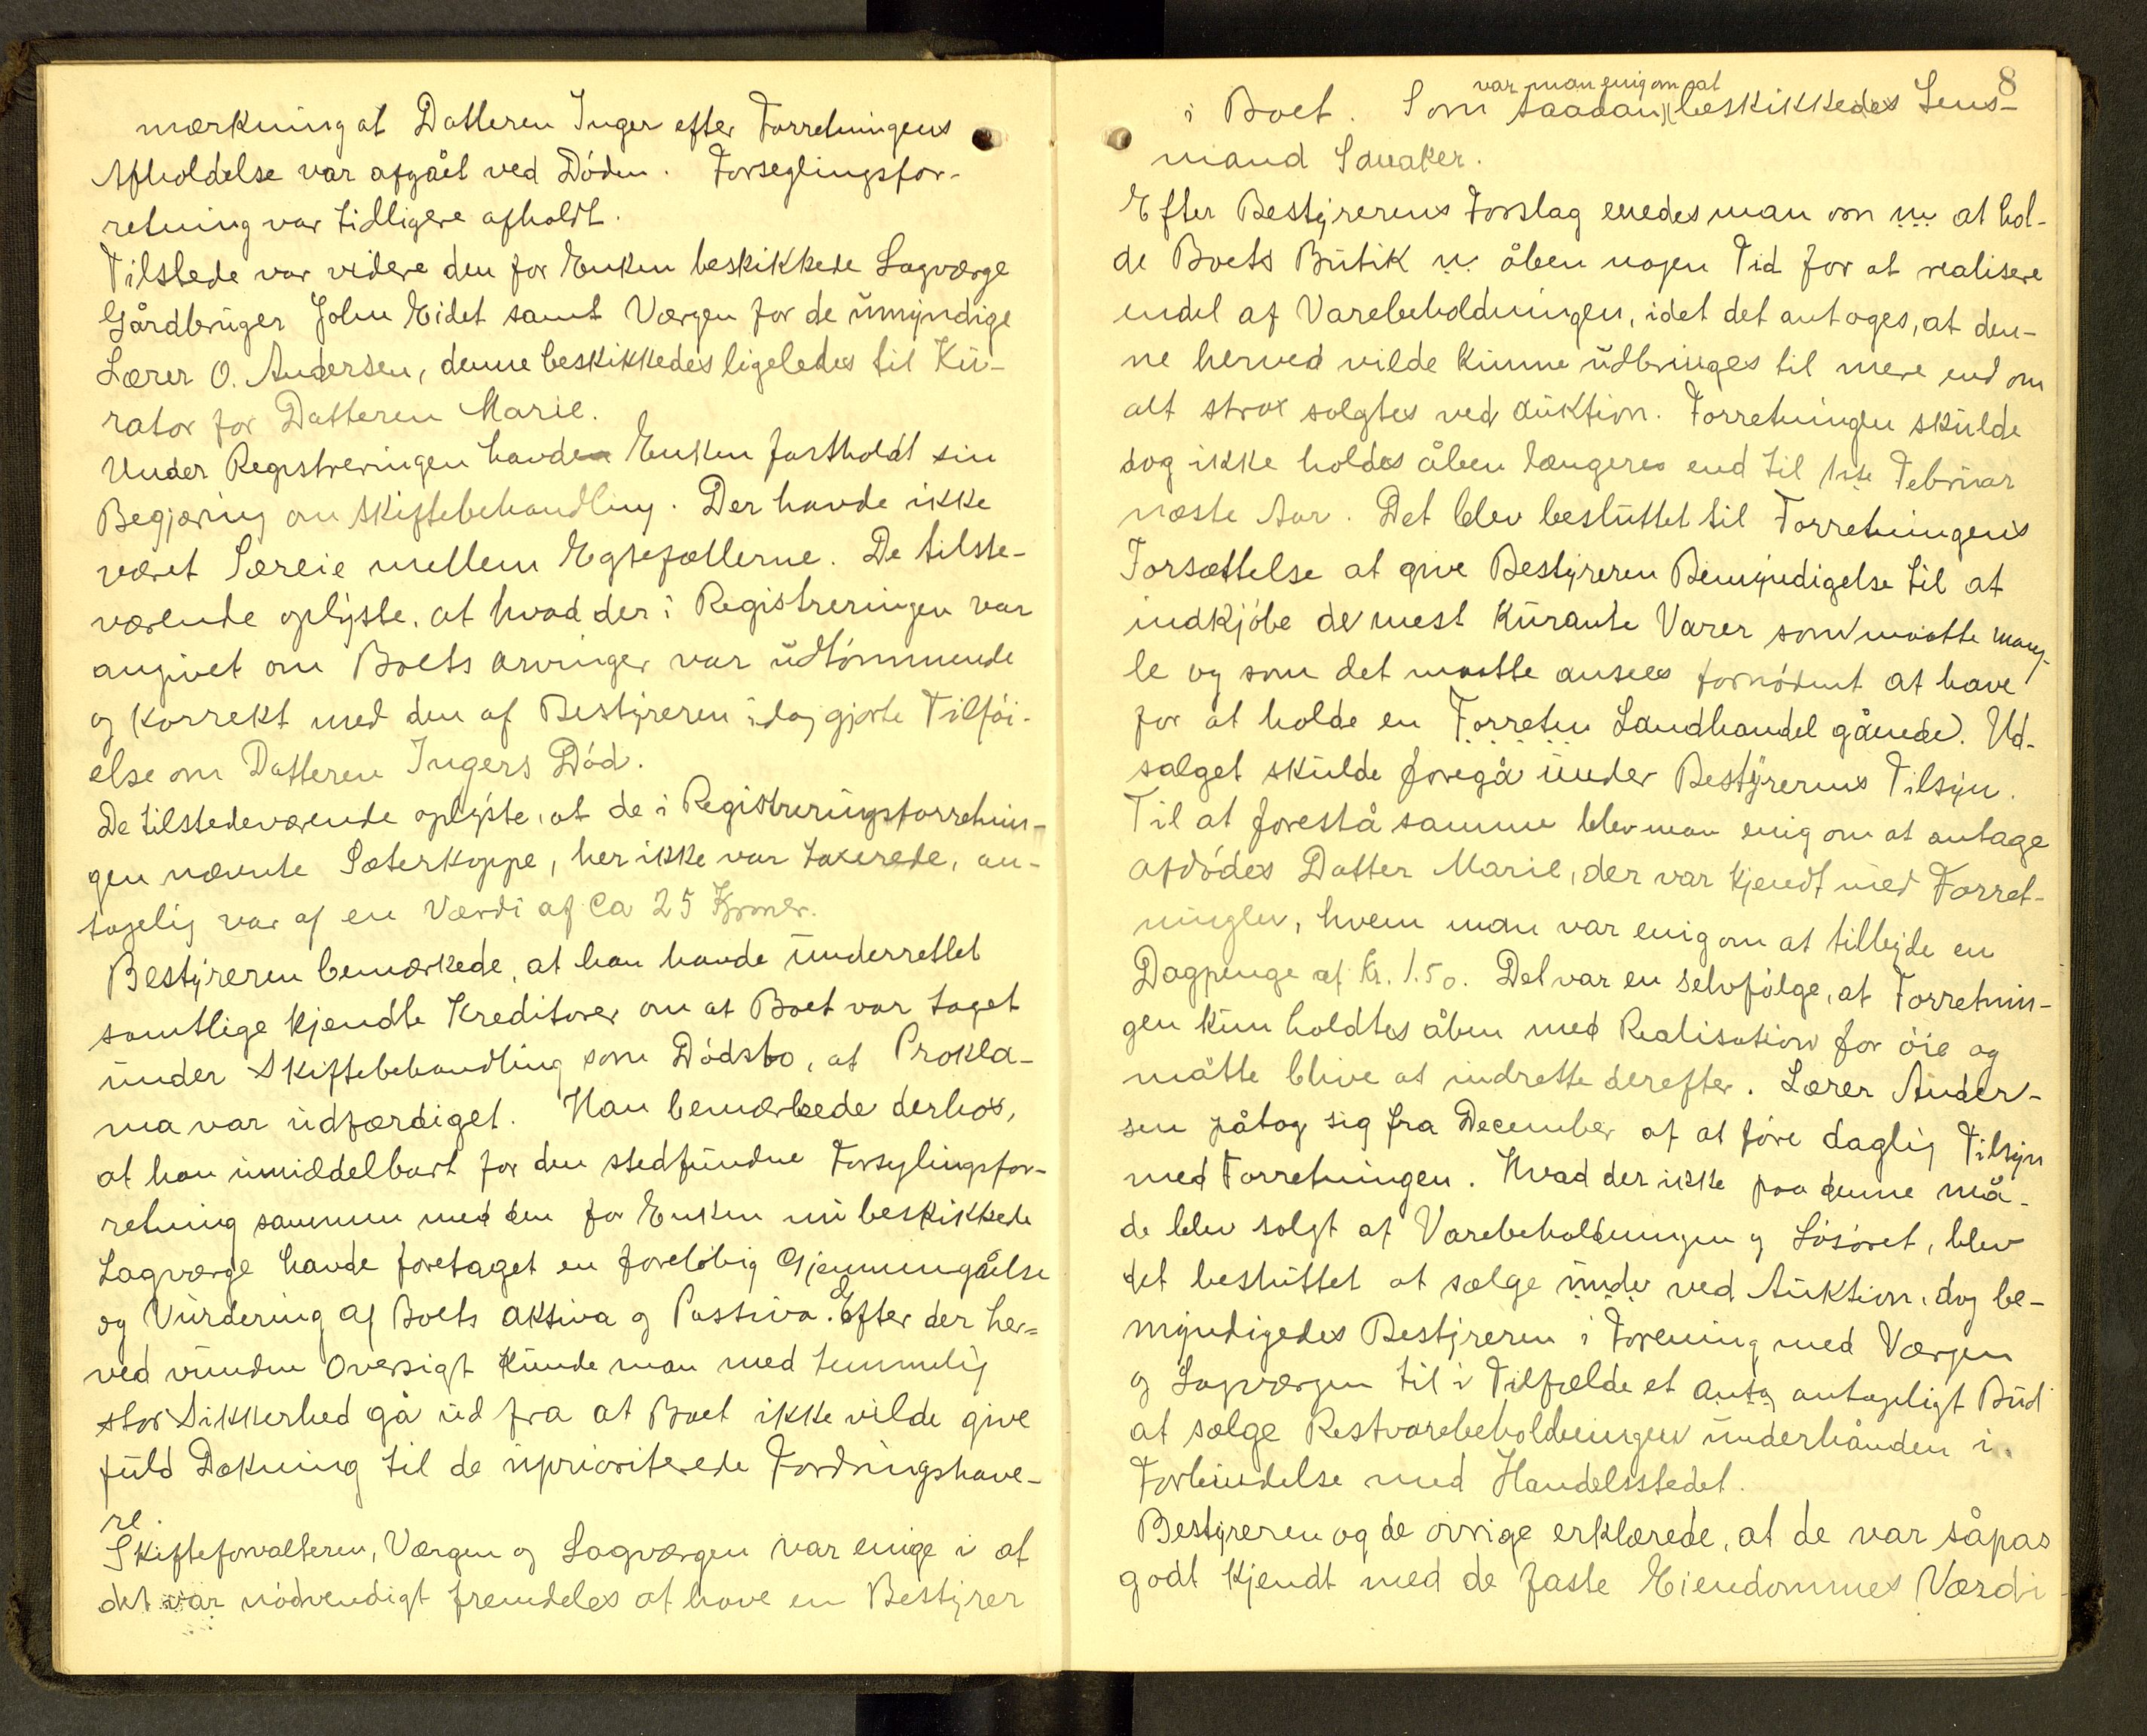 mærkning at Datteren Inger efter Forretningens
Afholdelse var afgået ved Døden. Forseglingsfor-
retning var tidligere afholdt.
Tilstede var videre den for Enken beskikkede Lagværge
Gårdbruger John Eidet samt Værgen for de umyndige
Lærer O. Andersen, denne beskikkedes ligeledes til Ku-
rator for Datteren Marie.
Under Registreringen havde Enken fastholdt sin
Begjæring om Skiftebehandling. Der havde ikke
været Særeie mellem Egtefællerne. De tilste-
værende oplyste, at hvad der i Registreringen var
angivet om Boets arvinger var udtømmende
og korrekt med den af Bestyreren idag gjorte Tilføi-
else om Datteren Ingers Død.
De tilstedeværende oplyste, at de i Registreringsforretnin-
gen nævnte Sæterkoppe, her ikke var taxerede, an-
tagelig var af en Værdi af Ca 25 Kroner.
Bestyreren bemærkede, at han havde underrettet
samtlige kjendte Kreditorer om at Boet var taget
under Skiftebehandling som Dødsbo, at Prokla-
ma var udfærdiget. Han bemærkede derhos,
at han umiddelbart for den stedfundne Forseglingsfor-
retning sammen med den for Enken nu beskikkede
Lagværge havde foretaget en foreløbig Gjennemgåelse
og Vurdering af Boets aktiva og Passiva. Efter der her-
ved vundne Oversigt kunde man med temmelig
stor Sikkerhed gå ud fra at Boet ikke vilde give
fuld Dækning til de uprioriterede Fordringshave-
re.
Skifteforvalteren, Værgen og Lagværgen var enige i at
det var nødvendigt fremdeles at have en Bestyrer
8
var man enig om at
i Boet. Som saadan beskikkedes Lens-
mand Sauaker.
Efter Bestyrerens Forslag enedes man om nu at hol-
de Boets Butik u åben nogen Tid for at realisere
endel af Varebeholdningen, idet det antoges, at den-
ne herved vilde kunne udbringes til mere end om
alt strax solgtes ved auktion. Forretningen skulde
dog ikke holdes åben længere end til 1ste Februar
næste Aar. Det blev besluttet til Forretningens
Forsættelse at give Bestyreren Bemyndigelse til at
indkjøbe de mest kurante Varer som maatte mang-
le og som det maatte ansees fornødent at have
for at holde en Forretn Landhandel gående. Ud-
salget skulde foregå under Bestyrerens Tilsyn.
Til at forestå samme blev man enig om at antage
afdødes Datter Marie, der var kjendt med Forret-
ningen, hvem man var enig om at tilbyde en
Dagpenge af Kr. 1.50. Det var en selvfølge, at Forretnin-
gen kun holdtes åben med Realisation for øie og
måtte blive at indrette derefter. Lærer Ander-
sen påtog sig fra December af at føre daglig Tilsyn
med Forretningen. Hvad der ikke paa denne må-
de blev solgt af Varebeholdningen og Løsøret, blev
det besluttet at sælge unde ved Auktion, dog be-
myndigedes Bestyreren i Forening med Værgen
og Lagværgen til i Tilfælde et antag antageligt Bud
at sælge Restvarebeholdningen underhånden i
Forbindelse med Handelsstedet.
Bestyreren og de øvrige erklærede, at de var såpas
godt kjendt med de faste Eiendommes Værdi